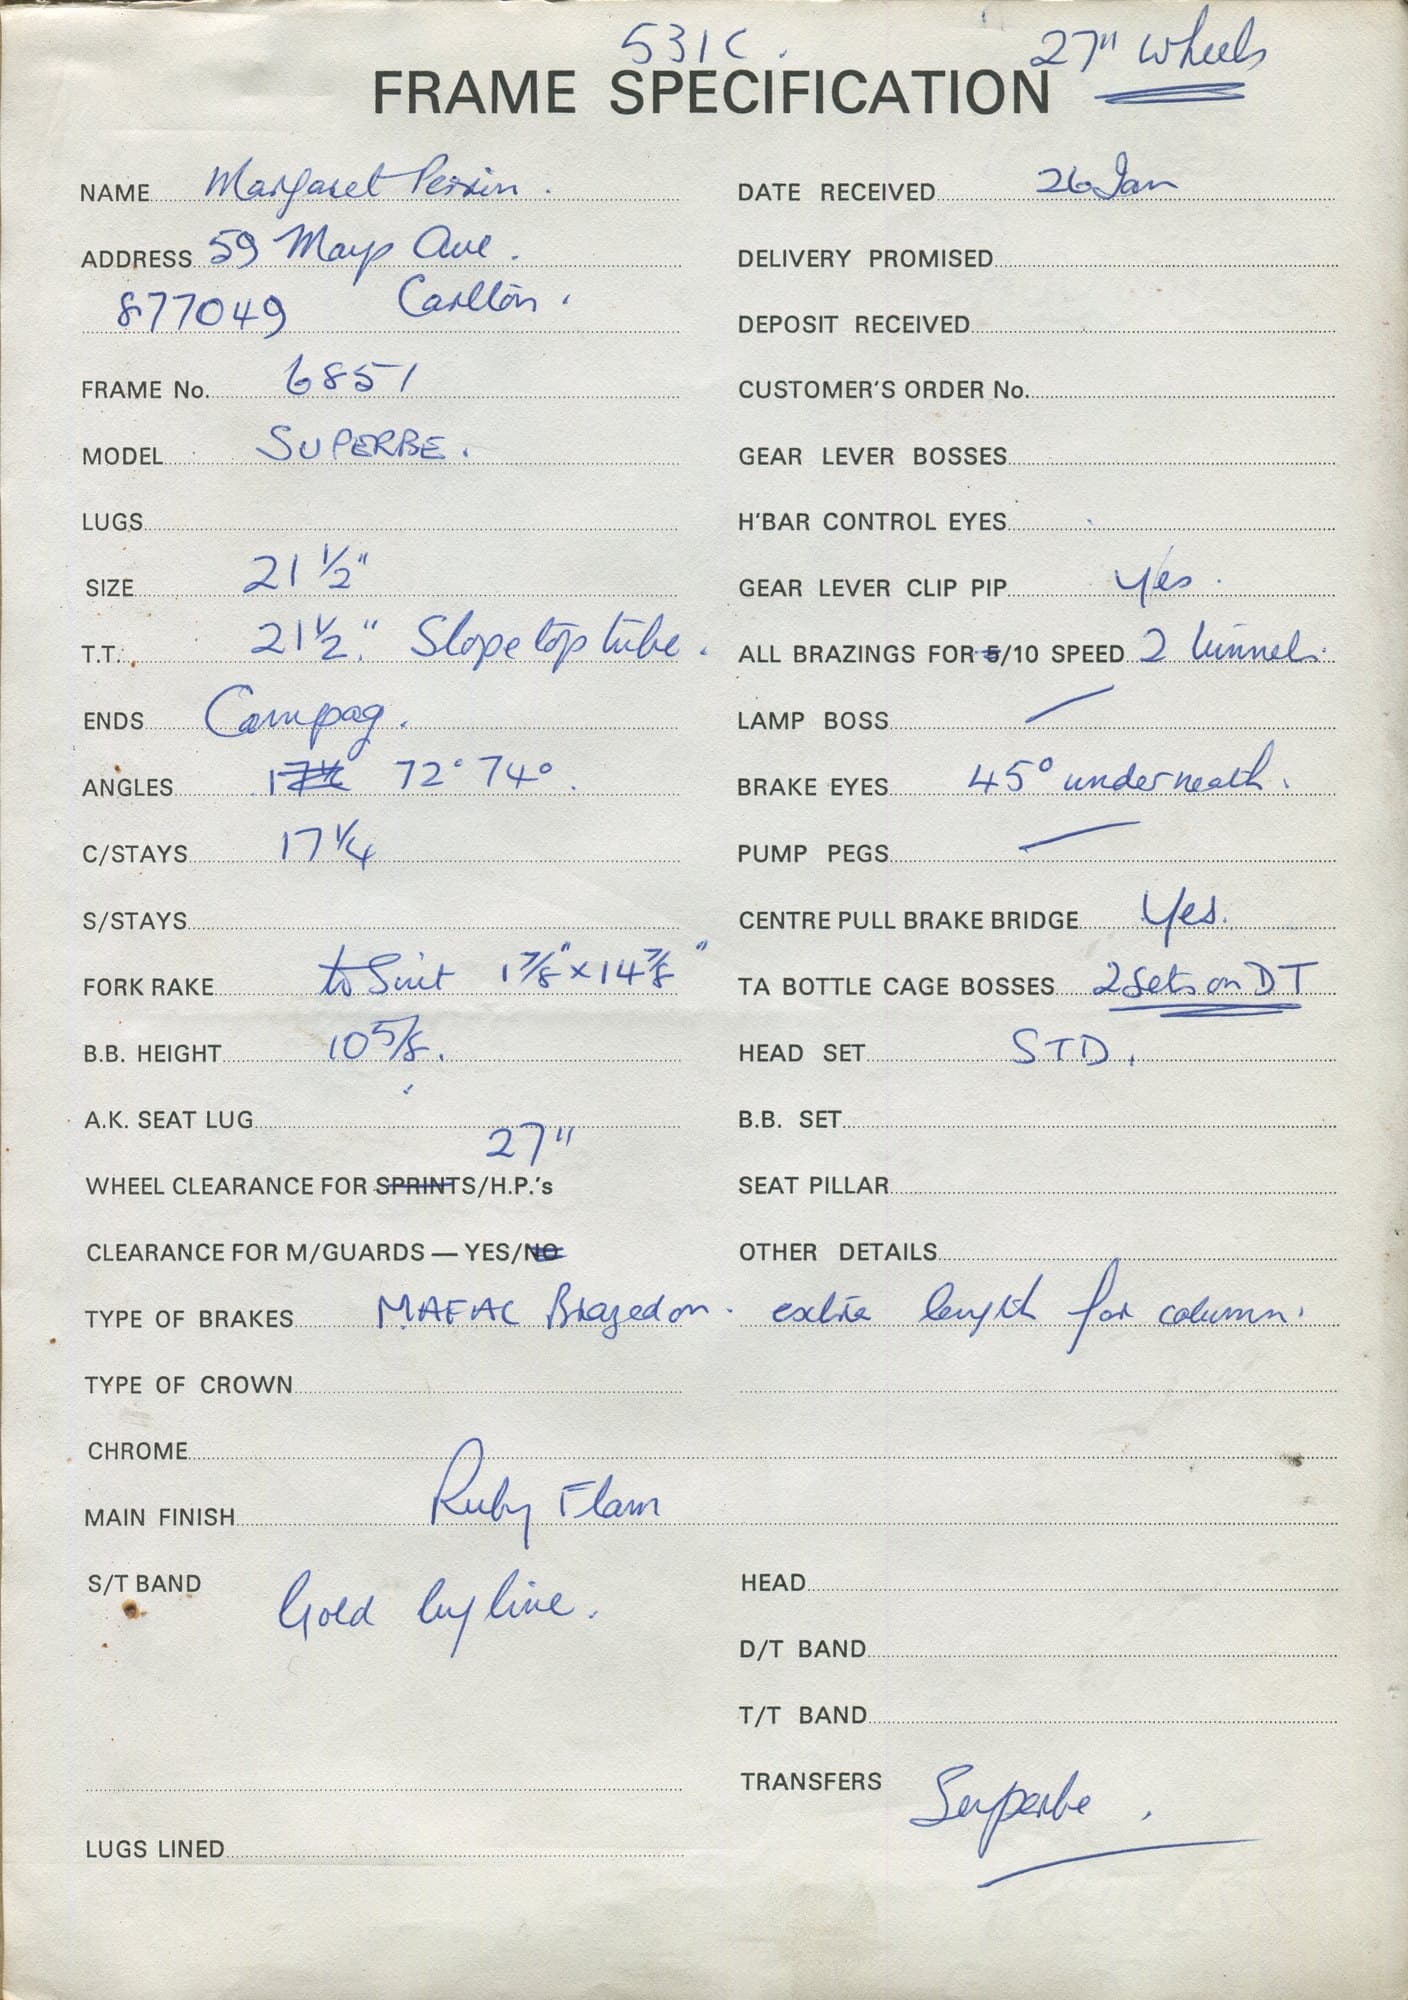 531C.
27" Wheels
FRAME SPECIFICATION
NAME Margaret Perrin.
ADDRESS 59 Mays Ave.
877049 Carlton.
FRAME No. 6851
MODEL SUPERBE.
LUGS
SIZE 21 1/2"
T.T. 21 1/2" Slope top tube.
ENDS Campag.
ANGLES 72° 74°
C/STAYS 17 1/4
S/STAYS
FORK RAKE to Suit 1 7/8" x 14 7/8"
B.B. HEIGHT 10 5/8.
A.K. SEAT LUG
27"
WHEEL CLEARANCE FOR SPRINTS/H.P.'s
CLEARANCE FOR M/GUARDS — YES/NO
TYPE OF BRAKES MAFAC Brazed on.
TYPE OF CROWN
DATE RECEIVED 26 Jan
DELIVERY PROMISED
DEPOSIT RECEIVED
CUSTOMER'S ORDER No.
GEAR LEVER BOSSES
H'BAR CONTROL EYES
GEAR LEVER CLIP PIP yes.
ALL BRAZINGS FOR 5/10 SPEED 2 tunnels.
LAMP BOSS —
BRAKE EYES 45° underneath.
PUMP PEGS —
CENTRE PULL BRAKE BRIDGE Yes.
TA BOTTLE CAGE BOSSES 2 Sets on DT
HEAD SET STD.
B.B. SET
SEAT PILLAR
OTHER DETAILS
extra length for column.
CHROME
MAIN FINISH Ruby Flam
S/T BAND
Gold lug line.
LUGS LINED
HEAD
D/T BAND
T/T BAND
TRANSFERS Superbe.